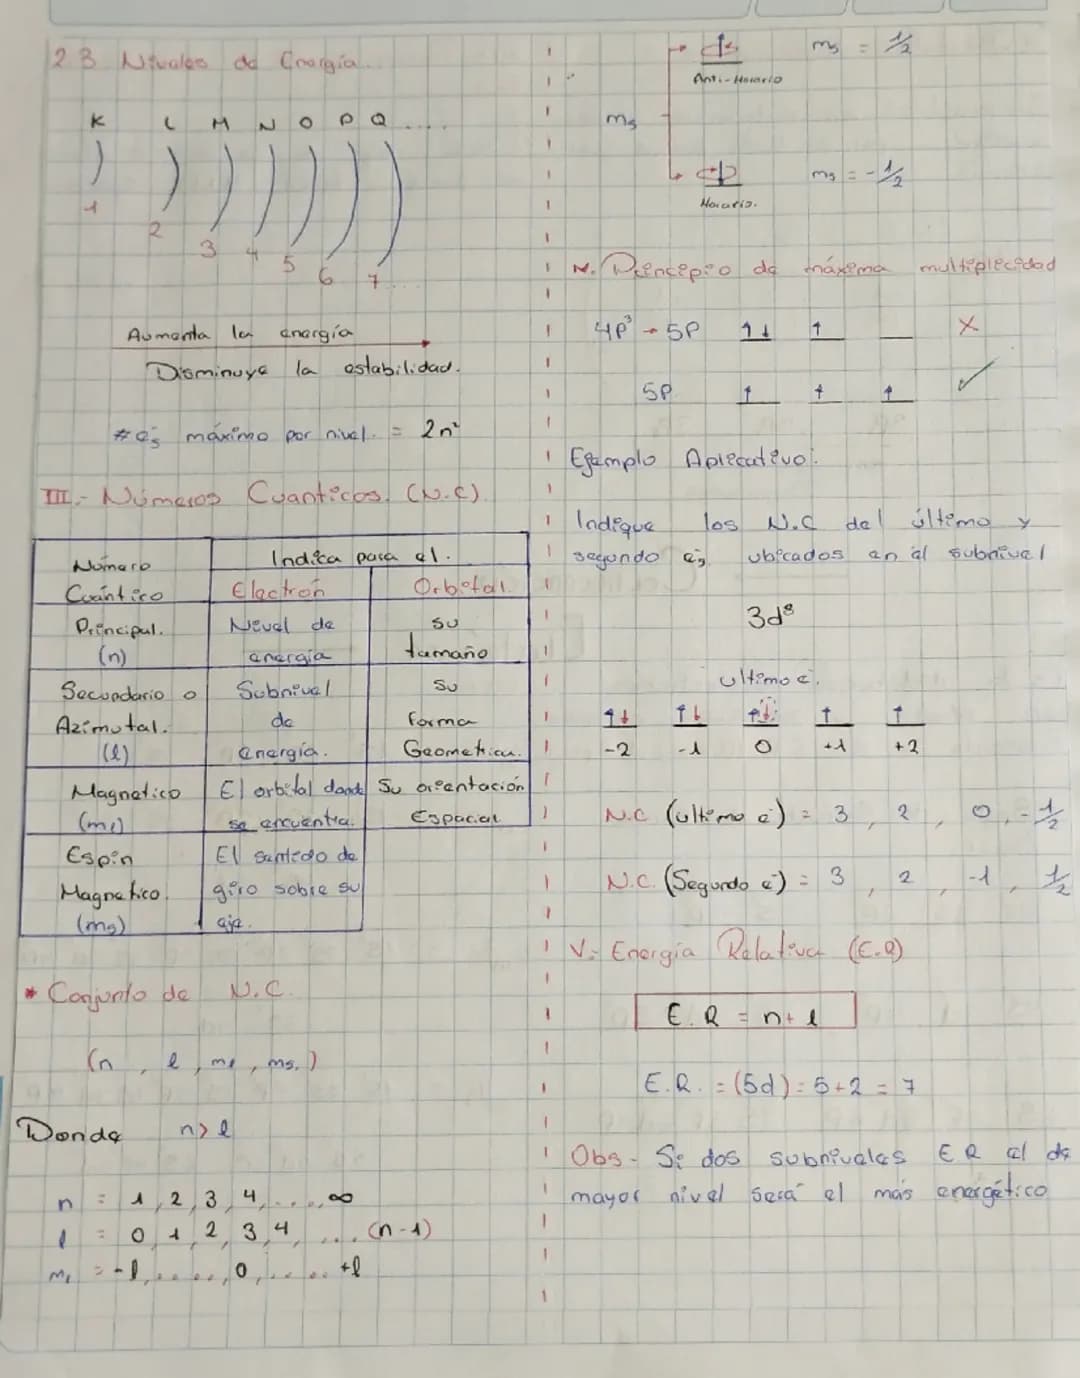 2.3 Niveles de Energía.
K L M N O P Q ....
1 2 3 4 5 6 7
Aumenta la energía
Disminuye la estabilidad.
# es máximo por nivel = 2n²
III.- Números Cuanticos. (N.C)
Número Cuántico
Indica para el.
Electrón
Orbital.
Principal. (n)
Nivel de energía
su tamaño
Secundario o Azimutal. (l)
Subnivel de energía.
su forma Geometrica.
Magnetico (ml)
El orbital donde se encuentra.
Su orientación Espacial
Espin Magnetico. (ms)
El sentido de giro sobre su eje.
* Conjunto de N.C.
(n, l, ml, ms.)
Donde n > l
n = 1, 2, 3, 4, ...., ∞
l = 0, 1, 2, 3, 4, .... (n-1)
ml = -l, ....., 0, ..... +l
ms
ms = 1/2
Anti-Horario
ms = -1/2
Horario.
N. Principio de máxima multiplicidad
4p³ → 5P ↑↓ ↑ _ ×
5P ↑ ↑ ↑ ✓
Ejemplo Aplicativo:
Indique los N.C del último y
segundo es ubicados en el subnivel
3d⁸
ultimo e.
↑↓ ↑↓ ↑↓ ↑ ↑
-2 -1 0 +1 +2
N.C (ultimo e) = 3, 2, 0, -1/2
N.C. (Segundo e) = 3, 2, -1, 1/2
V.- Energía Relativa (E.R)
E.R = n + l
E.R. = (5d) = 5+2 = 7
Obs - Si dos subniveles E R el de
mayor nivel será el más energético